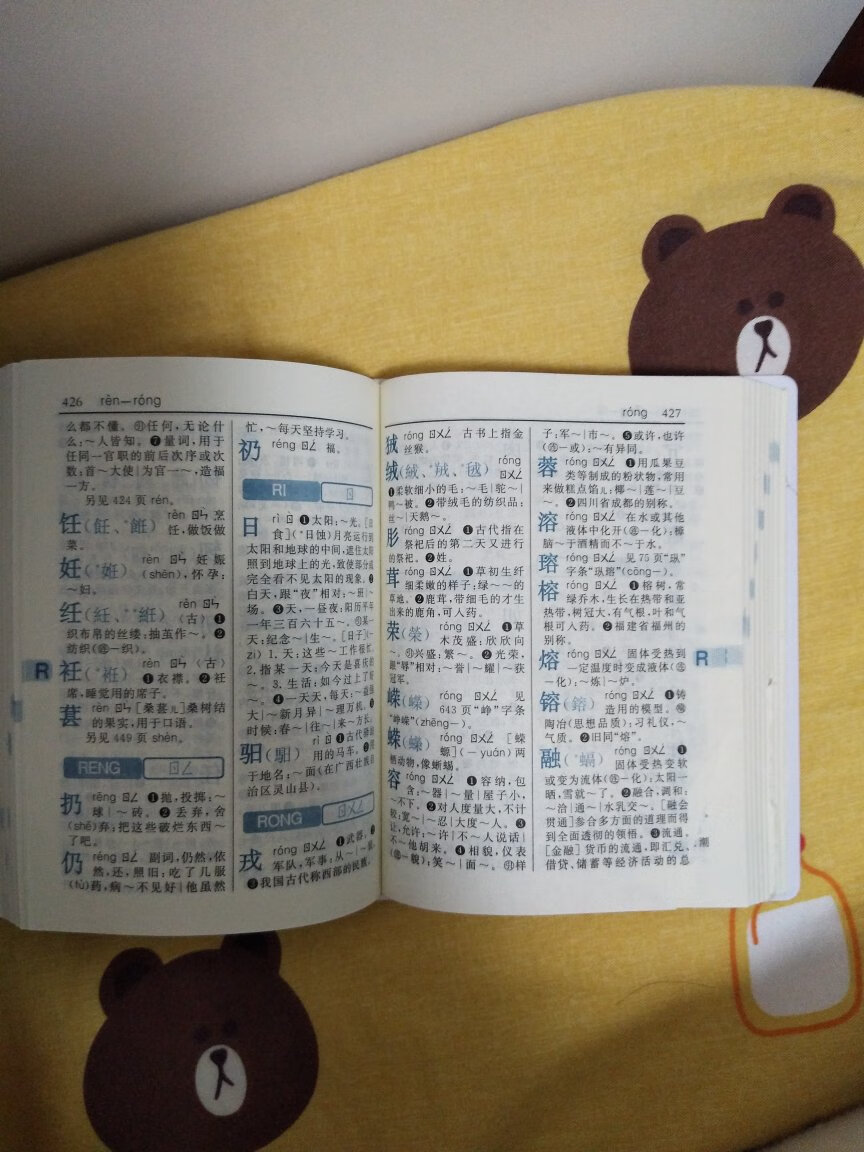 426 rèn—róng
么都不懂。㊁任何,无论什
么:～人皆知。❼量词,用于
任同一官职的前后次序或次
数:首～大使|为官一～,造福
一方。
另见 424 页 rén。
饪(飪、*餁) rèn ㄖㄣˋ 烹
饪,做饭做
菜。
妊(*姙) rèn ㄖㄣˋ 妊娠
(shēn),怀孕:
～妇。
纴(紝、**絍) rèn ㄖㄣˋ
(古) ❶
织布帛的丝缕:抽茧作～。❷
纺织(㊣—织)。
衽(*袵) rèn ㄖㄣˋ (古)
❶衣襟。❷衽
席,睡觉用的席子。
葚 rèn ㄖㄣˋ [桑葚儿]桑树结
的果实,用于口语。
另见 449 页 shèn。
RENG ㄖㄥ
扔 rēng ㄖㄥ ❶抛,投掷:～
球|～砖。❷丢弃,舍
(shě)弃:把这些破烂东西～
了吧。
仍 réng ㄖㄥˊ 副词,仍然,依
然,还,照旧:吃了几服
(fù)药,病～不见好|他虽然
忙,～每天坚持学习。
礽 réng ㄖㄥˊ 福。
RI ㄖ
日 rì ㄖˋ ❶太阳:～光。[日
食](*日蚀)月亮运行到
太阳和地球的中间,遮住太阳
照到地球上的光,致使部分或
完全看不见太阳的现象。❷
白天,跟“夜”相对:～班|～
场。❸天,一昼夜:阳历平年
一年三百六十五～。㊁某一
天:纪念～|生～。[日子](-
zi) 1.天:这些～工作很忙。
2.指某一天:今天是喜庆的
～。3.生活:如今过上了好
～。❹一天天,每天:～益强
大|～新月异|～理万机。❺
时候:春～|往～|来～方长。
驲(馹) rì ㄖˋ ❶古代驿站
用的马车。❷用
于地名:～面(在广西壮族自
治区灵山县)。
RONG ㄖㄨㄥ
戎 róng ㄖㄨㄥˊ ❶武器。❷
军队,军事:从～|～装。
❸我国古代称西部的民族。
róng 427
狨 róng ㄖㄨㄥˊ 古书上指金
丝猴。
绒(絨、*羢、*毧) róng
ㄖㄨㄥˊ
❶柔软细小的毛:～毛|驼～|
鸭～被。❷带绒毛的纺织品:
丝～|天鹅～。
肜 róng ㄖㄨㄥˊ ❶古代指在
祭祀后的第二天又进行
的祭祀。❷姓。
茸 róng ㄖㄨㄥˊ ❶草初生纤
细柔嫩的样子:绿～～的
草地。❷鹿茸,带细毛的才生
出来的鹿角,可入药。
荣(榮) róng ㄖㄨㄥˊ ❶草
木茂盛:欣欣向
～。㊁兴盛:繁～。❷光荣,
跟“辱”相对:～誉|～耀|～获
冠军。
嵘(嶸) róng ㄖㄨㄥˊ 见
643 页“峥”字条
“峥嵘”(zhēng—)。
蝾(蠑) róng ㄖㄨㄥˊ [蝾
螈](—yuán)两
栖动物,像蜥蜴。
容 róng ㄖㄨㄥˊ ❶容纳,包
含:～器|～量|屋子小,
～不下。❷对人度量大,不计
较:宽～|～忍|大度～人。❸
让,允许:～许|不～人说话|
不～他胡来。❹相貌,仪表
(㊣—貌):笑～|面～。㊁样
子:军～|市～。❺或许,也许
(㊣—或):～有异同。
蓉 róng ㄖㄨㄥˊ ❶用瓜果豆
类等制成的粉状物,常用
来做糕点馅儿:椰～|莲～|豆
～。❷四川省成都的别称。
溶 róng ㄖㄨㄥˊ 在水或其他
液体中化开(㊣—化):樟
脑～于酒精而不～于水。
瑢 róng ㄖㄨㄥˊ 见 75 页“瑽”
字条“瑽瑢”(cōng—)。
榕 róng ㄖㄨㄥˊ ❶榕树,常
绿乔木,生长在热带和亚
热带,树冠大,有气根,叶和气
根可入药。❷福建省福州的
别称。
熔 róng ㄖㄨㄥˊ 固体受热到
一定温度时变成液体(㊣
—化):～炼|～炉。
镕(鎔) róng ㄖㄨㄥˊ ❶铸
造用的模型。㊙
陶冶(思想品质):习礼仪,～
气质。❷旧同“熔”。
融(*螎) róng ㄖㄨㄥˊ ❶
固体受热变软
或变为流体(㊣—化):太阳一
晒,雪就～了。❷融合,调和:
～洽|通～|水乳交～。[融会
贯通]参合多方面的道理而得
到全面透彻的领悟。❸流通。
[金融]货币的流通,即汇兑、
借贷、储蓄等经济活动的总
R
R